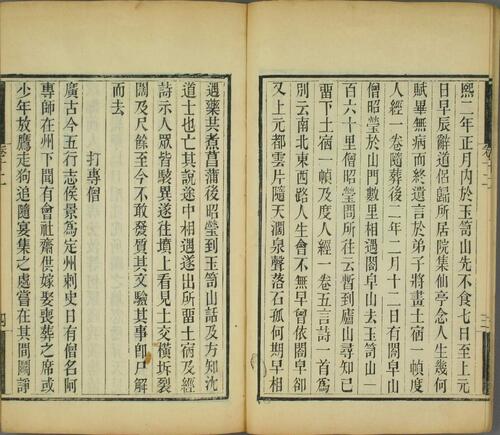 熙二年正月內於玉笥山先不食七日至上元
日早辰辭道侶歸所居院集仙亭念人生幾何
賦畢無病而終遺言於弟子將畫土宿一幀度
人經一卷隨葬後二年二月十二日有閤皁山
僧昭瑩於山門數里相遇閤皁山去玉笥山一
百六十里僧昭瑩問所往云暫到廬山尋知己
留下土宿一幀及度人經一卷五言詩一首爲
別云南北東西路人生會不無早曾依閤皁卻
又上元都雲片隨天濶泉聲落石孤何期早相
遇藥共煮菖蒲後昭瑩到玉笥山話及方知沈
道士也亡其說途中相遇遂出所畱土宿及經
詩示人眾皆駭異遂往墳上看見土交橫坼裂
闊及尺餘至今不敢發質其文驗其事卽尸解
而去
打專僧
廣古今五行志侯景爲定州刺史日有僧名阿
專師在州下閒有會社齋供嫁娶喪葬之席或
少年放鷹走狗追隨宴集之處嘗在其間鬬諍